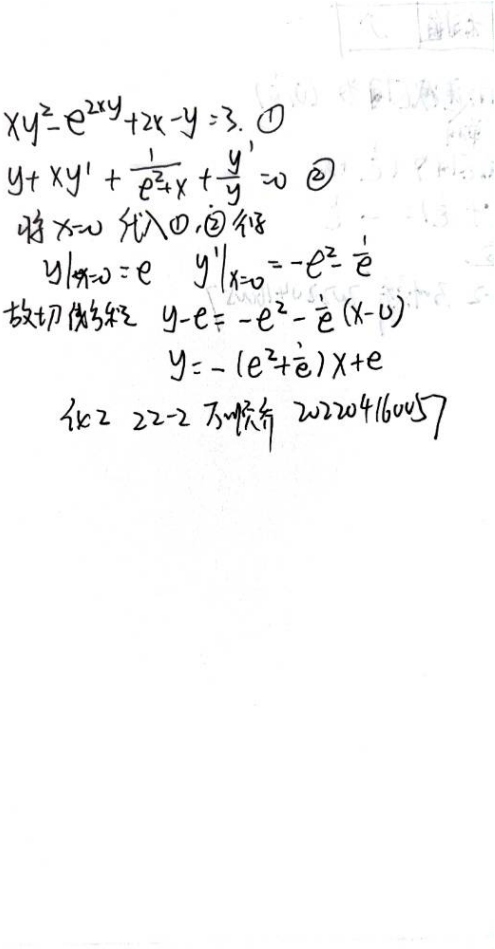 xy²-e^{2xy}+2x-y=3. ①
y+xy'+\frac{1}{e²+x}+\frac{y'}{y}=0 ②
将x=0代入①,②得
y|x=0=e y'|x=0=-e²-\frac{1}{e}
故切 y-e=-e²-\frac{1}{e}(x-0)
y=-(e²+\frac{1}{e})x+e
22-2 202204160057